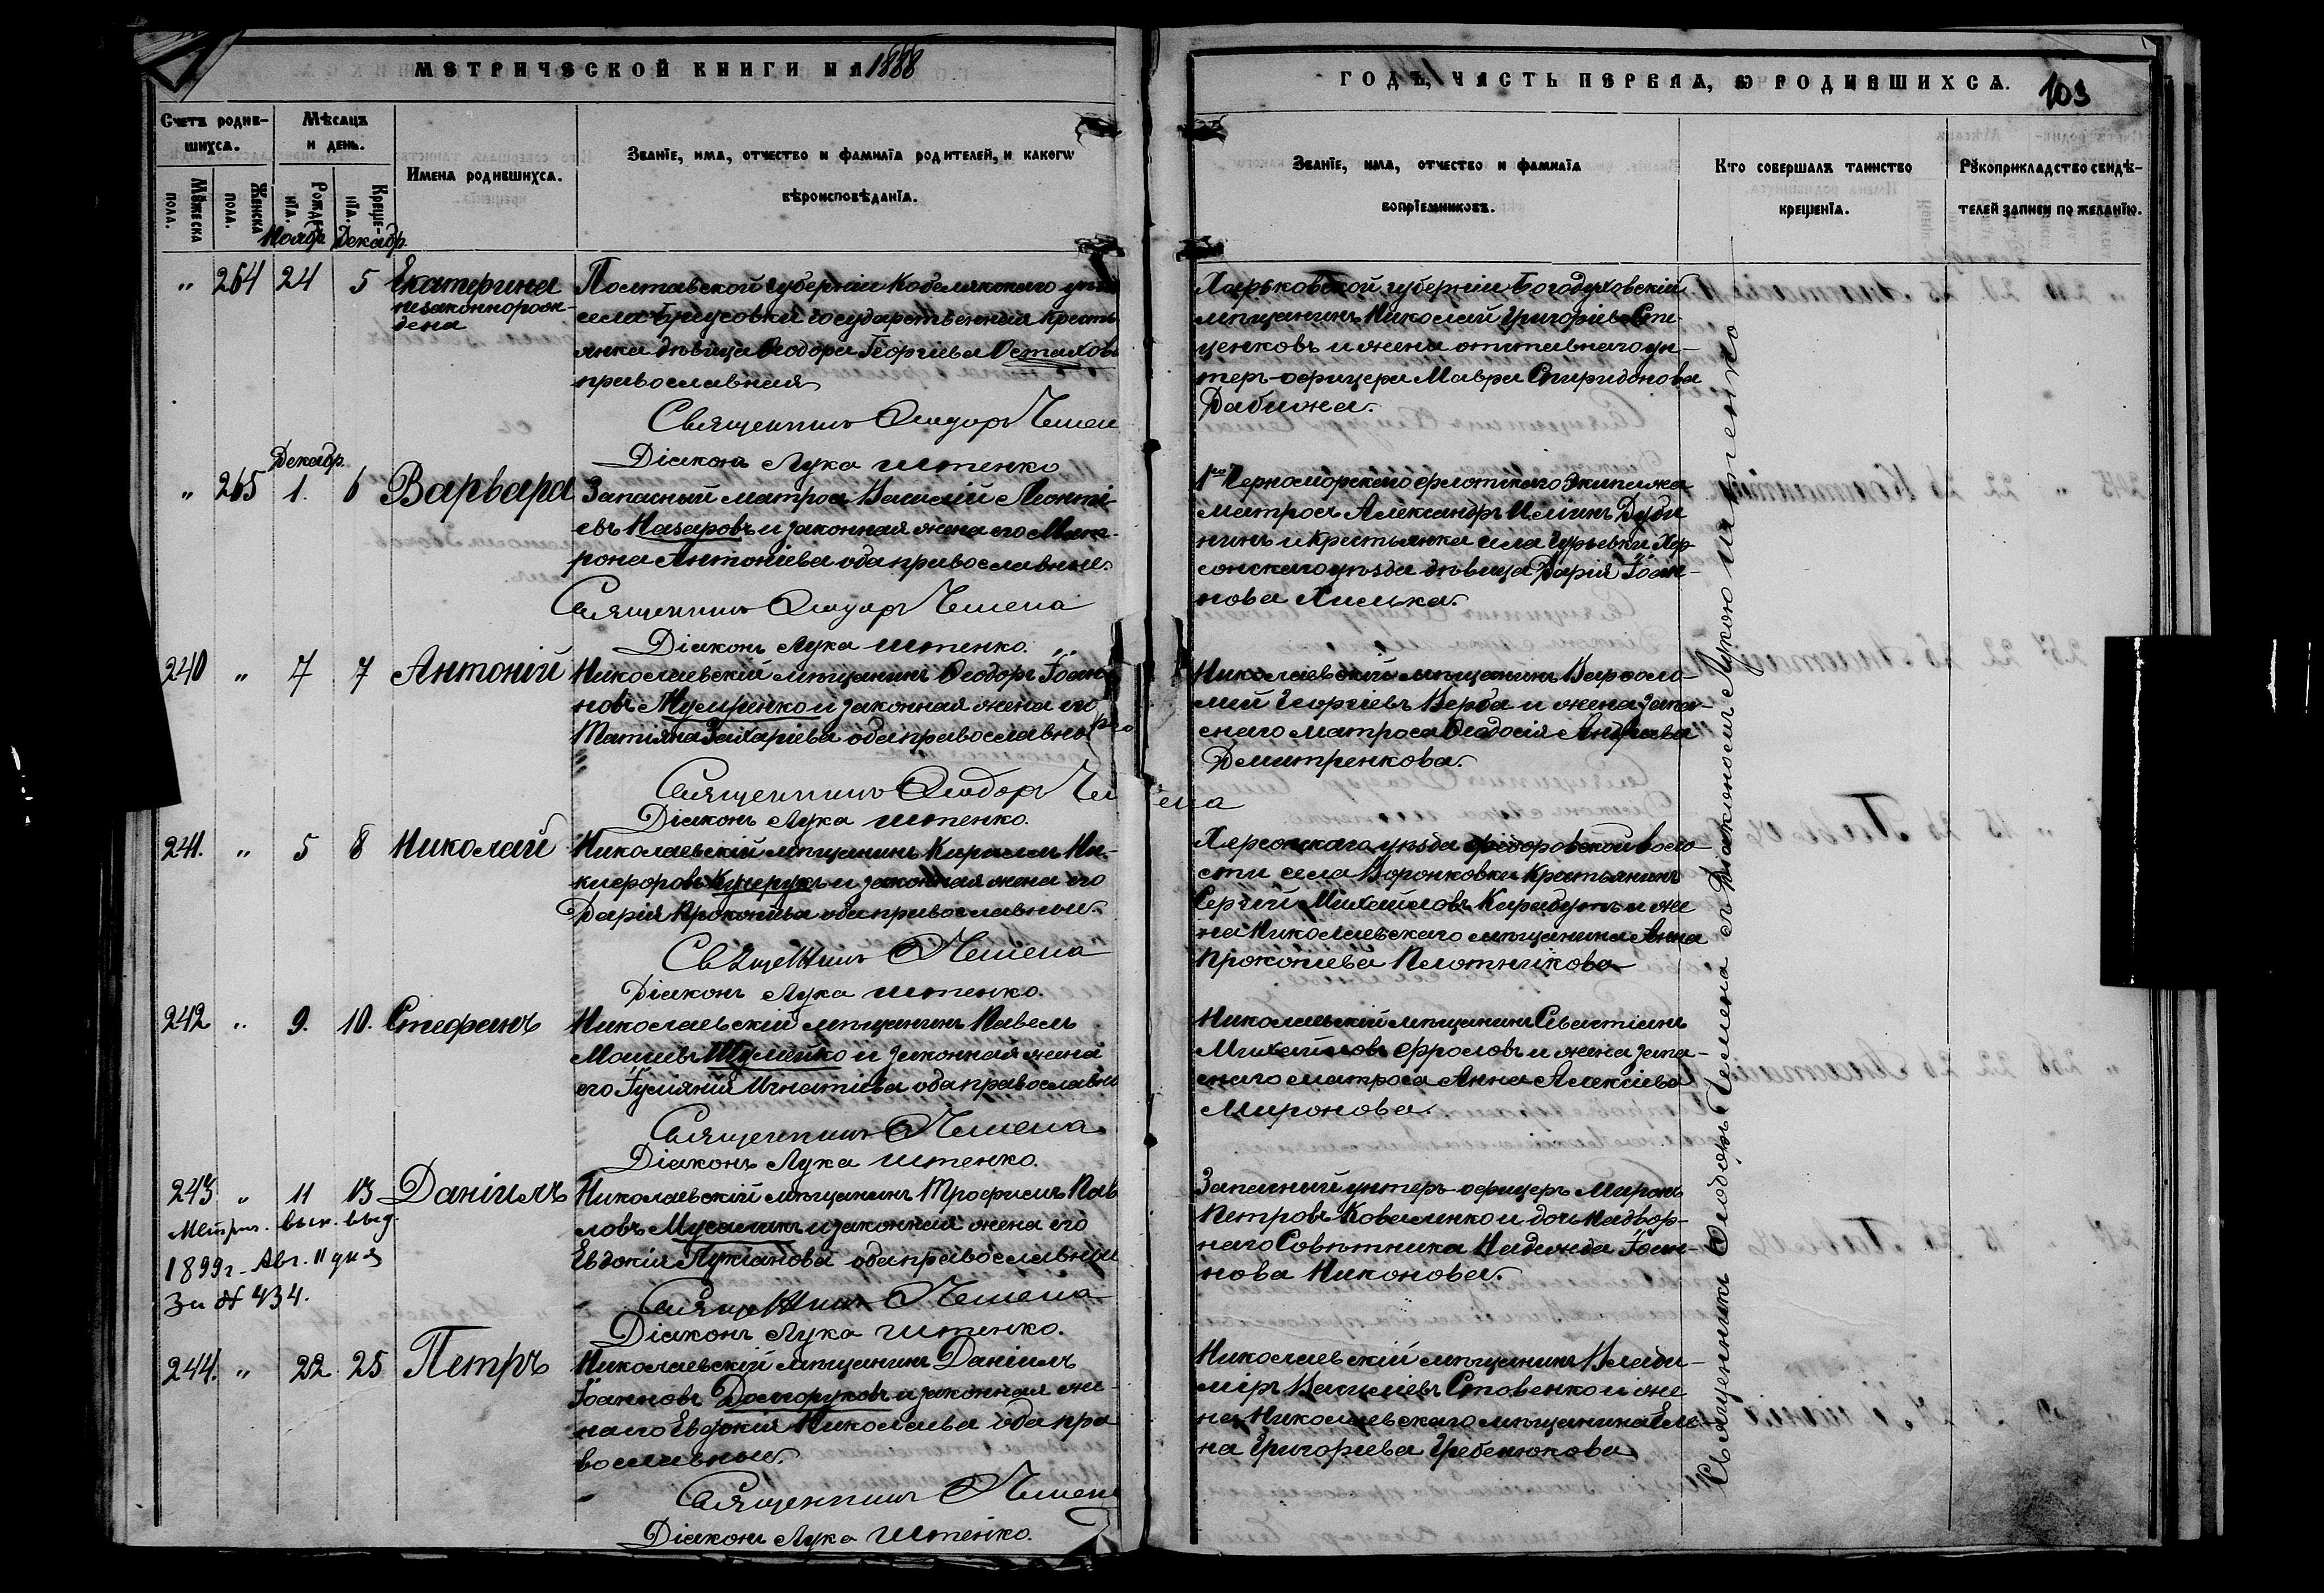 МЕТРИЧЕСКОЙ КНИГИ НА 1888
ГОДЪ, ЧАСТЬ ПЕРВАЯ, Ѡ РОДИВШИХСА.
103
Счетъ родив-
шихса.
Мѣсацъ
и день.
Имена родившихса.
Званїе, има, отчество и фамилїа родителей, и какогѡ
вѣроисповѣданїа.
Мꙋжеска
пола.
Женска
пола.
Рожде-
нїа.
Креще-
нїа.
Ноябр. Декабр.
Званїе, има, отчество и фамилїа
воспрїемниковъ.
Кто совершалъ таинство
крещенїа.
Рꙋкоприкладство свидѣ-
телей записи по желанїю.
" 264 24 5 Екатерина
незаконнорож-
дена
Полтавской губерніи Кобелякскаго уѣзда
села государственная кресть
янка дѣвица Ѳеодора Георгіева Остахов
православная
Священникъ Ѳеодоръ Чемен
Діаконъ Лука Штенко
Харьковской губерніи Богодуховскій
мѣщанинъ Николай Григоріевъ Сти-
ценковъ и жена отставнаго ун-
теръ-офицера Мавра Спиридонова
Дабижа.
Декабр.
" 265 1. 6 Варвара
Запасный матросъ Василій Леонті-
евъ Назаровъ и законная жена его Мат-
рона Антоніева оба православные.
Священникъ Ѳеодоръ Чемена
Діаконъ Лука Штенко.
1го Черноморскаго флотскаго Экипажа
матросъ Александръ Дуби
нинъ и крестьянка села Гурьевки Хер
сонскаго уѣзда дѣвица Дарія Іоан-
нова
240 " 7 7 Антоній
Николаевскій мѣщанинъ Ѳеодоръ Іоан-
новъ и законная жена его
Татіяна Захаріева оба православно
Священникъ Ѳеодоръ Чемена
Діаконъ Лука Штенко.
Николаевскій мѣщанинъ Варѳоло-
мий Георгіевъ Верба и жена запа-
снаго матроса Ѳеодосія Андреева
Дмитренкова.
241. " 5 8 Николай
Николаевскій мѣщанинъ Кириллъ Ни-
кифоровъ Кучерукъ и законная жена его
Дарія Прокопіева оба православные.
Священникъ Ѳ Чемена
Діаконъ Лука Штенко.
Херсонскаго уѣзда Фёдоровской воло-
сти села Воронковки крестьянинъ
Сергій Михайловъ и же
на Николаевскаго мѣщанина Анна
Прокопіева Плотникова
242 " 9. 10. Стефанъ
Николаевскій мѣщанинъ Павелъ
и законная жена
его Іуліянія Игнатіева оба православны
Священникъ Ѳ Чемена
Діаконъ Лука Штенко.
Николаевскій мѣщанинъ Севастіянъ
Михайловъ Фроловъ и жена запа-
снаго матроса Анна Алексіева
Миронова.
243 " 11 13 Даніилъ
Метрич. вып. выд.
1899г. Авг. 11 дня
За № 434.
Николаевскій мѣщанинъ Трофимъ Пав
ловъ и законная жена его
Евдокія Лукіанова оба православные
Священникъ Ѳ Чемена
Діаконъ Лука Штенко.
Запасный унтеръ-офицеръ Миронъ
Петровъ Коваленко и дочь надвор-
наго Совѣтника Надежда Іоан-
нова Никонова.
244. " 22 25 Петръ
Николаевскій мѣщанинъ Даніилъ
Іоанновъ Долгоруковъ и законная же-
на его Евдокія Николаева оба пра
вославные.
Священникъ Ѳ Чемена
Діаконъ Лука Штенко.
Николаевскій мѣщанинъ Влади-
міръ Василіевъ Стовенко и же
на Николаевскаго мѣщанина Еле-
на Григоріева Гребенюкова
Священникъ Ѳеодоръ Чемена съ Діакономъ Лукою Штенко